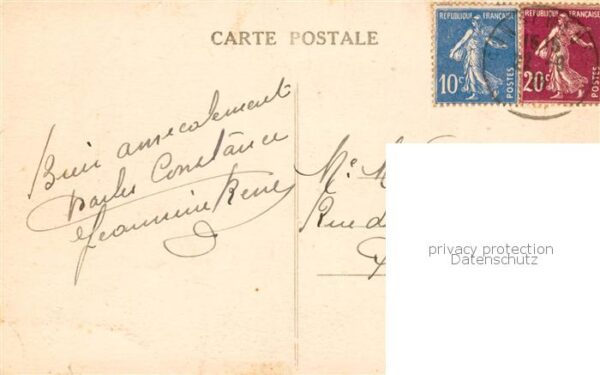 CARTE POSTALE
REPUBLIQUE FRANÇAISE
10c POSTES
REPUBLIQUE FRANÇAISE
20c POSTES
Bien amicalement
Constance
Jeannine René
Mr M
Rue d
privacy protection
Datenschutz